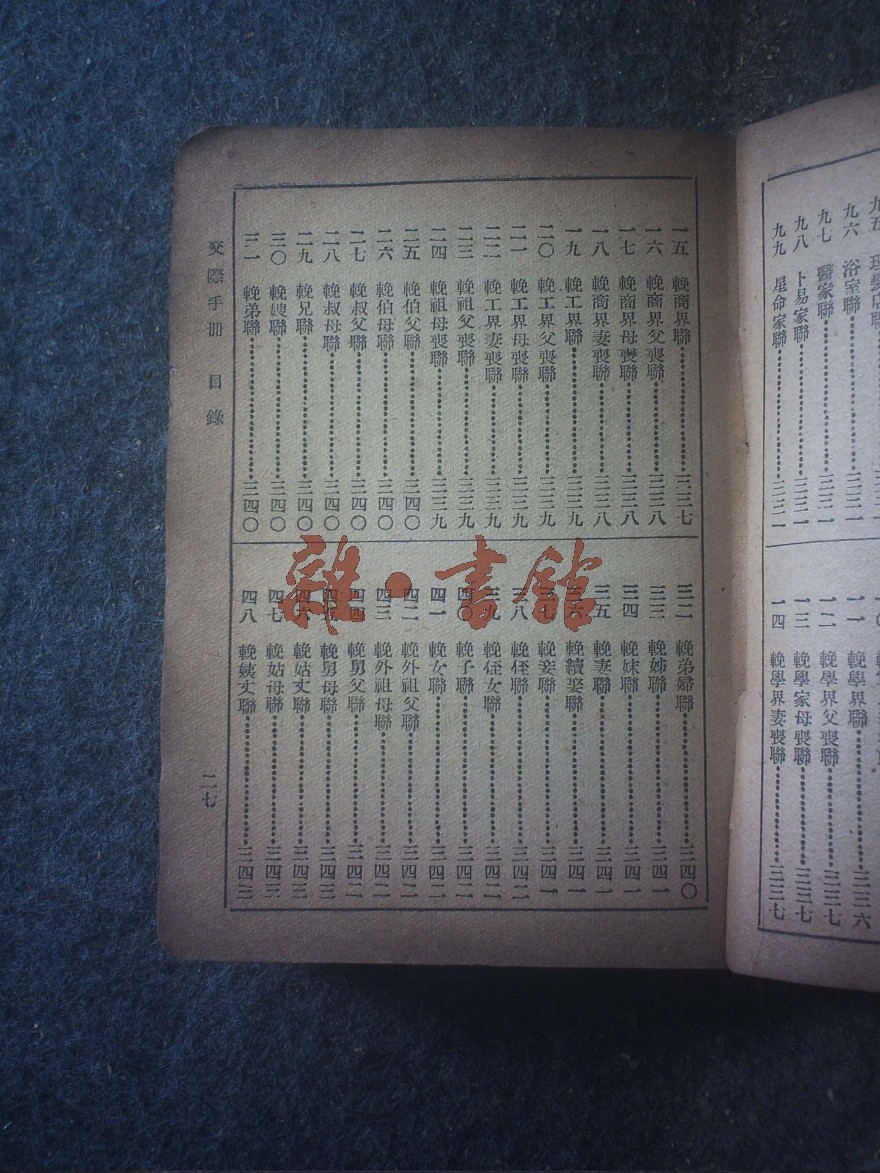 九六 浴室聯 三三一
九七 醫家聯 三三一
九八 卜易家聯 三三一
九九 星命家聯 三三一
一一 輓學界聯 三三六
一二 輓學界父喪聯 三三七
一三 輓學家母喪聯 三三七
一四 輓學界妻喪聯 三三七
一五 輓商界聯 三三七
一六 輓商界父喪聯 三三八
一七 輓商界母喪聯 三三八
一八 輓商界妻喪聯 三三八
一九 輓工界聯 三三九
二〇 輓工界父喪聯 三三九
二一 輓工界母喪聯 三三九
二二 輓工界妻喪聯 三三九
二三 輓祖父喪聯 三三九
二四 輓祖母喪聯 三三九
二五 輓伯父聯 三四〇
二六 輓伯母聯 三四〇
二七 輓叔父聯 三四〇
二八 輓叔母聯 三四〇
二九 輓兄聯 三四〇
三〇 輓嫂聯 三四〇
三一 輓弟聯 三四〇
三二 輓弟婦聯 三四〇
三三 輓姊聯 三四一
三四 輓妹聯 三四一
三五 輓妻聯 三四一
三六 輓續娶聯 三四一
三七 輓妾聯 三四一
三八 輓侄聯 三四二
三九 輓侄女聯 三四二
四〇 輓子聯 三四二
四一 輓女聯 三四二
四二 輓外祖父聯 三四二
四三 輓外祖母聯 三四二
四四 輓舅父聯 三四二
四五 輓舅母聯 三四三
四六 輓姑丈聯 三四三
四七 輓姑母聯 三四三
四八 輓姨丈聯 三四三
交際手册 目錄
二七
雜·書館